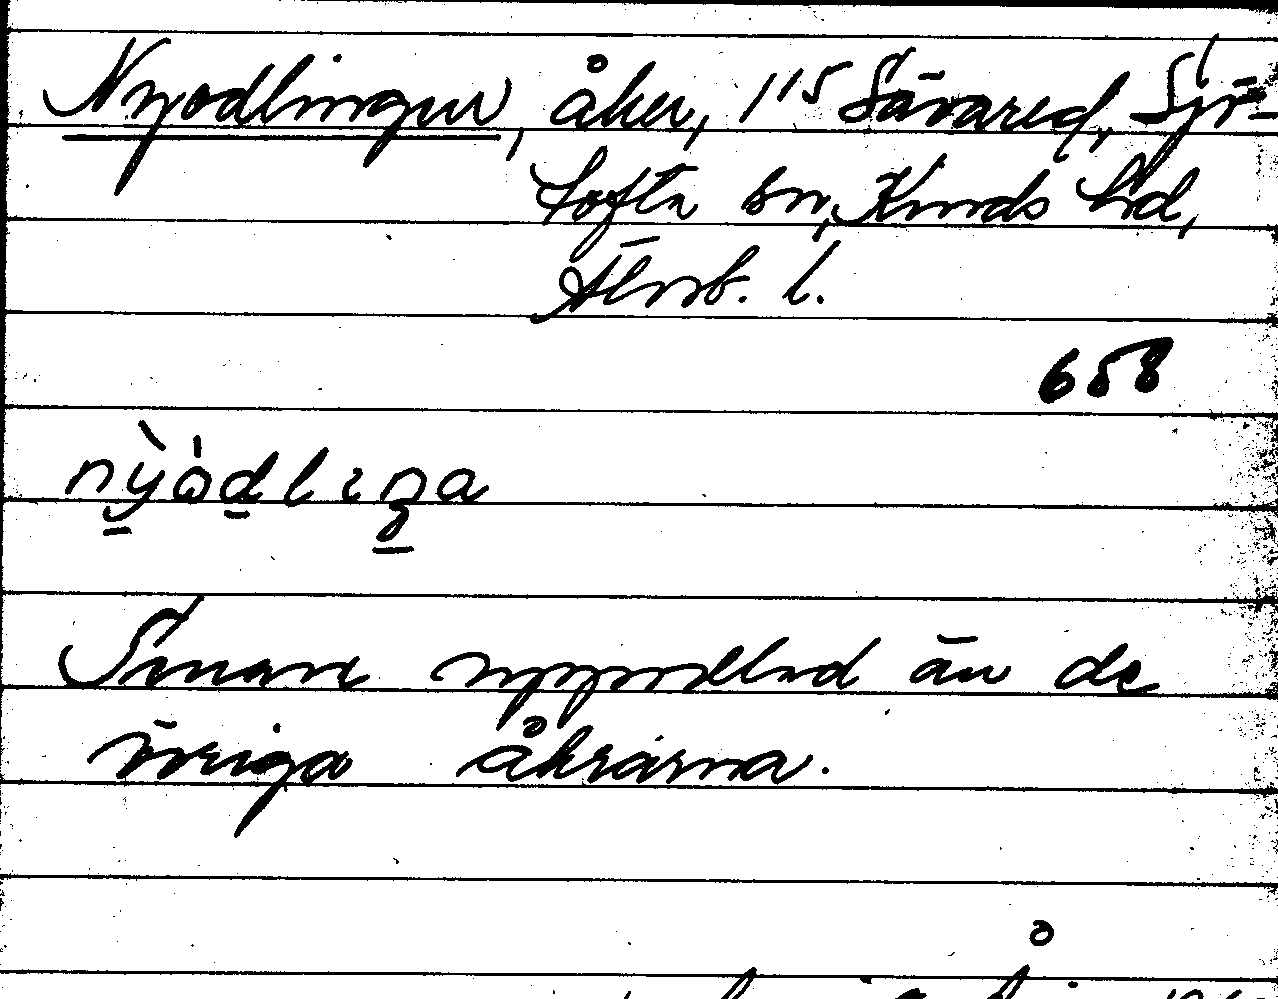 Nyodlingen, åker, 1/15 Sävared, Sjö-
tofta sn, Kinds hd,
Älvsb. l.
658
nỳòdlıŋa
Senare uppodlad än de
övriga åkrarna.